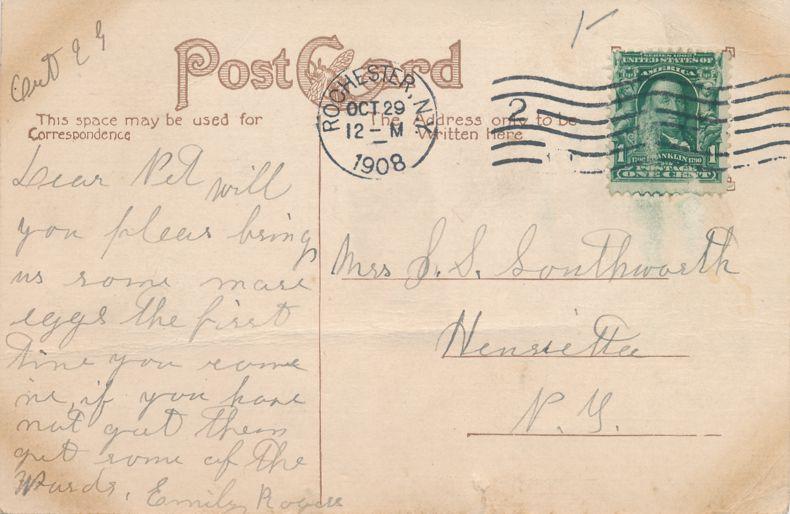 Oct 29
Post Card
This space may be used for
Correspondence
The Address only to be
Written here
ROCHESTER, N.Y.
OCT 29
12 - M
1908
2
SERIES 1902
UNITED STATES OF
AMERICA
1 FRANKLIN 1
POSTAGE
ONE CENT
Dear Pet will
you pleas bring
us some more
eggs the first
time you come
in, if you have
not got them
get some of the
Wards, Emily Rogers
Mrs J. S. Southworth
Henrietta
N. Y.